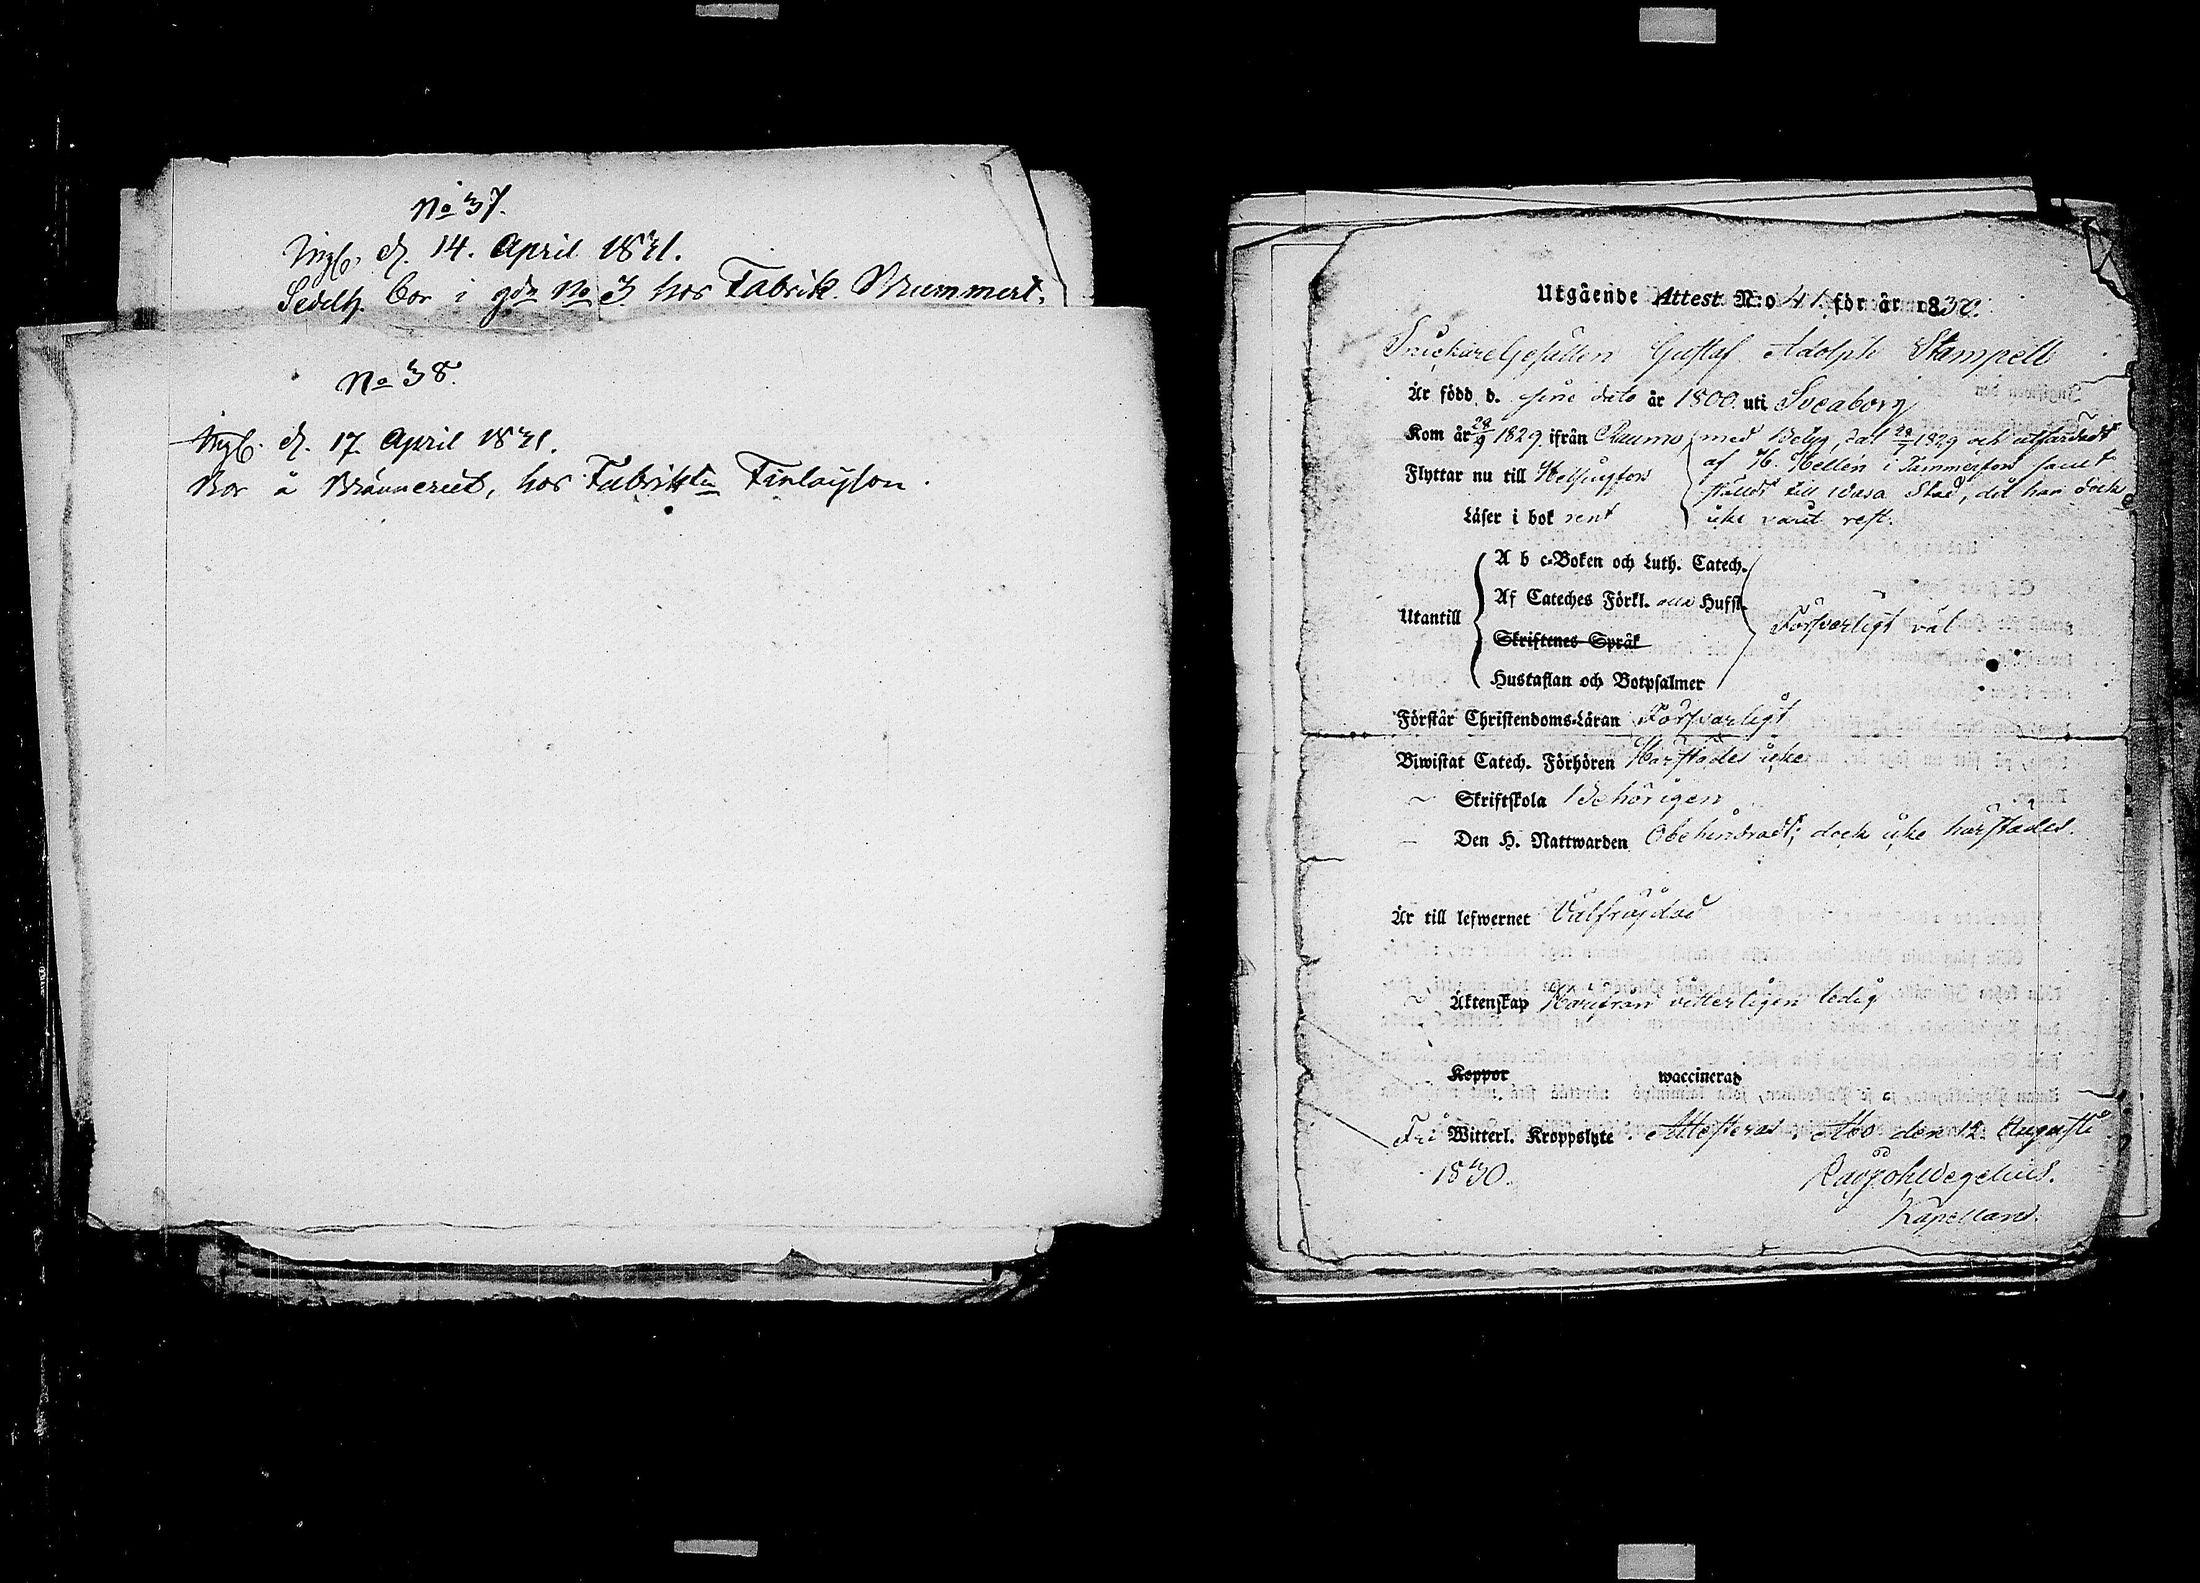 No 37.
Ingb. d. 14. April 1831.
Sedelh. bor i gdn No 3 hos Fabrik. Brummert.
No 38.
Ingb. d. 17 April 1831.
Bor å Bränneriet, hos Fabriktn Finlayson.
Utgående Attest N:o 41. för år 1830.
Snickare Gesällen Gustaf Adolph Stampell
Är född d. sine dato år 1800. uti Sveaborg
Kom år 28/9 1829 ifrån Raumo med Betyg dat 28/9 1829 och utfärdadt
af H. Hellén i Tammerfors samt
Flyttar nu till Helsingfors
stäldt till Wasa Stad, dit han dock
Läser i bok rent
icke varit rest.
A b c-Boken och Luth. Catech.
Af Cateches Förkl. Husfl.
Utantill
Försvarligt väl
Skriftenes Språk
Hustaflan och Botpsalmer
Förstår Christendoms-Läran Försvarligt
Biwistat Catech. Förhören Härstädes icke
~ Skriftskola Behörigen
— Den H. Nattwarden Obehindradt; dock icke härstädes.
Är till lefwernet Välfräjdad
~ Äktenskap Härifrån vetterligen ledig
Koppor waccinerad
Fri Witterl. Kroppslyte. Attesteras. Åbo den 12 Augusti
1830.
Wegelius.
Kapellan.